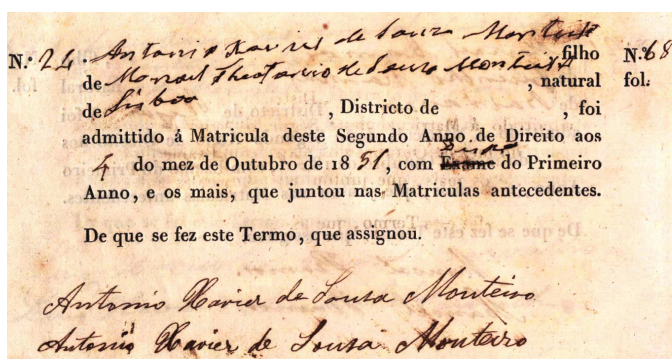 N.º 24. Antonio Xavier de Souza Monteiro filho N.º 68
de Manoel Theotonio de Souza Monteiro, natural fol.
de Lisboa, Districto de , foi
admittido á Matricula deste Segundo Anno de Direito aos
4 do mez de Outubro de 1851, com Exame do Primeiro
Anno, e os mais, que juntou nas Matriculas antecedentes.
De que se fez este Termo, que assignou.
Antonio Xavier de Sousa Monteiro
Antonio Xavier de Sousa Monteiro